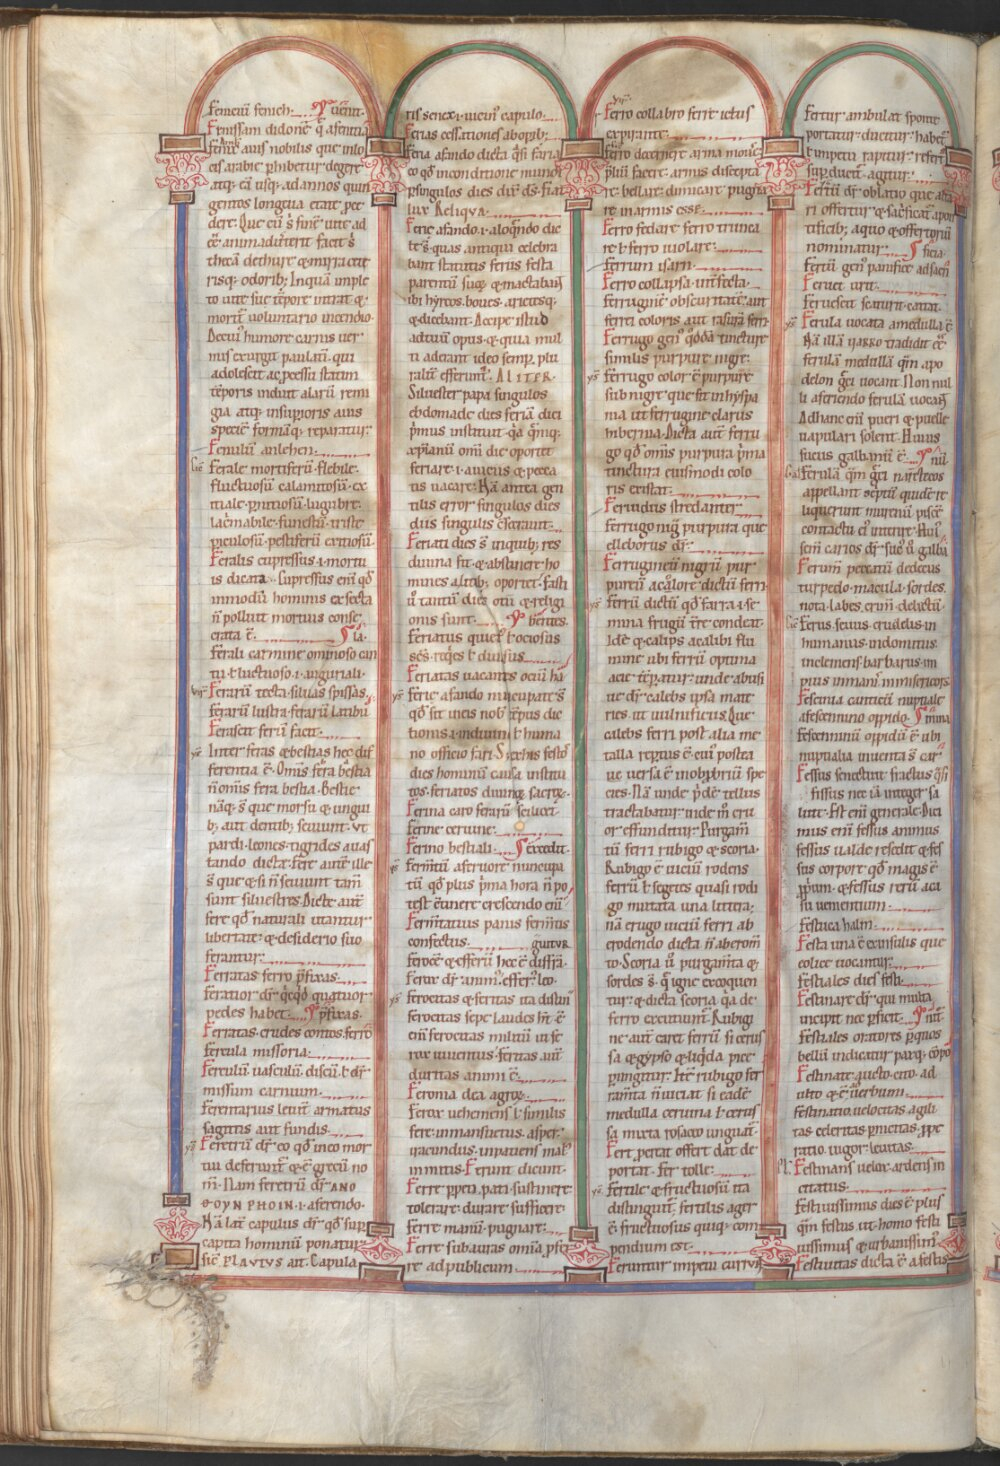 Feniculū fenich.
Fenissam didonē q̄ a fenitia
Fenix auis nobilis que in lo
cis arabie phibetur degere
atq; eā usq; ad annos quin
gentos longeua etate pce
dere. Que cū s̄ finē uite ad
ēē animaduerterit facit s̄
thecā de thure & mirra cete
risq; odorib; In quā imple
to uite sue tēpore intrat &
moritʳ uoluntario incendio.
De cui' humore carnis uer
mis exurgit paulatī. qui
adolescit ac pcessu statuti
tēporis induit alarū remi
gia atq; insupioris auis
speciē formāq; reparatur.
Ferale mortiferū. flebile.
fluctuosū calamitosū. ex
itiale. pnitiosū. lugubre.
lacrimabile. funestū. triste
piculosū. pestiferū exitiosū.
Feralis cupressus .i. mortu
is dicata. Cupressus enī qd̄
in modū hominis exsecta
n̄ pollulet mortuis conse
crata ē.
Ferali carmine ominoso can
tu .ł. luctuoso .i. auguriali.
Ferarū tecta. siluas spissas.
Ferarū lustra. ferarū latibu
Ferascit ferū facit.
Inter feras & bestias hec dif
ferentia ē. Om̄is fera bestia
n̄ om̄is fera bestia. Bestie
nāq; s̄ que morsu & ungui
b; aut dentib; seuiunt. ut
pardi. leones. tigrides a uas
tando dicte. Fere autē ille
s̄ que & si n̄ seuiunt tam̄
sunt siluestres. Dicte autē
fere qd̄ naturali utantur
libertate. & desiderio suo
ferantur.
Ferratas ferro pfixas.
Feratior dr̄ qcqd̄ quatuor
pedes habet.
Ferratas. crudes contos. ferro
Fercula missoria.
Ferculū uasculū. discū. ł dr̄
missum carnium.
Ferentarius leuit̄ armatus
sagittis aut fundis.
Feretrū dr̄ eo qd̄ in eo mor
tui deferunt̄ & ē grecū no
m̄. Nam feretrū dr̄ ΑΝΟ
ΘΟΥΝ ΡΗΟΙΝ .i. a ferendo.
Nā lat̄ capulus dr̄ qd̄ sup
capita hominū ponatur
sic PLAVTVS ait. Capula
ris senex .i. uicin' capulo.
Ferias cessationes ab opib;
Feria a fando dicta q̄si faria
eo qd̄ in conditione mundi
p singulos dies dix̄ ds̄. fiat
lux. Reliqua.
Ferie a fando .i. a loquendo dic
te s̄. quas antiqua celebra
bant statutis ferus festa
parentū suoꝝ & mactabant
ibi hyrcos. boues. arietesq;
& dicebant. Accipe istud
ad tuū opus. & quia mul
ti aderant ideo semp plu
raliť efferunt̄. ALITER.
Siluester papa singulos
ebdomade dies feriā dici
primus instituit. q̄a q̄mq;
xp̄ianū om̄i die oportet
feriare .i. a uiciis & pecca
tis uacare. Nā antea gen
tilis error singulos dies
diis singulis cōsecrant.
Feriati dies s̄ in quib; res
diuina fit. & abstinere ho
mines a litib; oportet. Fasti
ū tantū dies otii & religi
onis sunt.
Feriatus quiet' ł ociosus
Feriatas uacantes ociū hā
Ferie a fando nuncupate s̄
qd̄ sit in eis nob̄ tēpus dic
tionis .i. in diuino ł huma
no officio fari. S; ex his festos
dies hominū causa institu
tos. feriatos diuinoꝝ sacroꝝ.
Ferina caro ferarū scilicet
Ferine ceruine.
Ferino bestiali.
Fermtū a feruore nuncupa
tū. qd̄ plus p̄ma hora n̄ po
test cōtinere. crescendo enī
Fermtatius panis fermtis
confectus.
Ferocitas & feritas ita distin
ferocitas sepe laudes hn̄t. ē
enī ferocitas militū ut fe
rox iuuentus. feritas autē
duritas animi ē.
Feronia dea agroꝝ.
Ferox uehemens ł similis
fere. inmansuetus. asper.
iracundus. inpatiens. mal'
inmitis. Ferunt dicunt.
Ferre ppeti. pati. sustinere
tolerare. durare. sufficere
Ferre manū. pugnare.
Ferre sub auras omnia pfer
re ad publicum.
Ferro collabro ferre ictus
expirante.
Ferro decernere arma mouē.
prelium facere. armis discepta
re. bellare. dimicare. pugna
re in armis esse.
Ferro fedare ferro trunca
re ł ferro uiolare.
Ferrum isarn.
Ferro collapsa. int̄fecta.
Ferrugine obscuritate. aut
ferrei coloris aut rasura ferri
Ferrugo gen' qd̄dā tincture
similis purpure nigre.
Ferrugo color ē purpure
subnigre que fit in hyspa
nia ut ferrugine clarus
hibernia. Dicta autē ferru
go qd̄ om̄is purpura p̄ma
tinctura eiusmodi colo
ris existat.
Ferruginus stredanter.
Ferrugo nigra purpura que
elleborus dr̄.
Ferrugineū nigrū pur
pureū a colore dictū ferri
Ferrū dictū qd̄ farra .i. se
mina frugū tr̄e condeat.
Idē & calips a calibi flu
mine ubi ferrū optima
acie tēperatur. unde abusi
ue dr̄ calebs ipsa mate
ries. ut uulnificus. Que
calebs ferri post alia me
talla reptus ē. cui' postea
ue uersa ē in obprobriū spe
cies. Nā unde p̄de tellus
tractabatur. inde m̄ cru
or effunditur. Purgam̄
tū ferri rubigo & scoria.
Rubigo ē uiciū rodens
ferrū ł segetes quasi rodi
go mutata una littera;
nā erugo uiciū ferri ab
erodendo dicta n̄ ab erom̄
to. Scoria ū purgam̄ta &
sordes s̄ q̄ igne excoquen
tur. & dicta scoria q̄a de
ferro excutitur. Rubigi
ne autē caret ferrū si cerus
sa & gypso & liqda pice
p ungitur. Itē rubigo fer
ram̄ta n̄ uiciat si eadē
medulla ceruina ł cerus
sa mixta rosaceo unguat̄.
Fert. portat. offert. dat. de
portat. fer tolle.
Fertile & fructuosū ita
distinguitʳ. fertilis ager
ē. fructuosus quiq; com
pendium est.
Feruntur impetu currus
Fertur ambulat sponte
portatur. ducitur. habet̄
ł impetu rapitur. refert̄
sup ducit̄. agitur.
Fertū dr̄ oblatio que alta
ri offertur & sacrificat̄ a pon
tificib; a quo & offertoriū
nominatur.
Fertū gen' panificii ad sacrī
Feruet urit.
Feruescit scaturit. estuat.
Ferula uocata a medulla ē.
Nā illā uarro tradidit eē
ferulā medullā q̄m apo
delon greci uocant. Non nul
li a feriendo ferulā uocant
Ad hanc enī pueri & puelle
uapulari solent. Huius
sucus galbanū ē.
Ferulā q̄m greci narteceos
appellant. septū quidē re
liquerunt. murenū piscē
contactu ei' interire. Hui'
sem̄ carios dr̄. suc' ū galba
Ferum peccatū dedecus
turpedo. macula. sordes.
nota. labes. crim̄. delictū.
Ferus. seuus. crudelis. in
humanus. indomitus.
inclemens. barbarus. im
pius. inmanis. inmisericors
Fescenia canticū nuptiale
a fescennino oppido.
Fescenninū oppidū ē ubi
nuptialia inuenta s̄ car
Fessus senectute fractus q̄si
fissus nec iā integer sa
lute. Est enī generale. Dici
mus enī fessus animus
fessus ualde resedit. & fes
sus corpore qd̄ magis ē
prium. & fessus rerū aca
su uementium.
Festuca halm.
Festa una ē ex insulis que
eolice uocantur.
Festiales dies festi.
Festinare dr̄ qui multa
incipit nec pficit.
Festiales oratores p quos
bellū indicatur parq; cōpo
Festinate. aucto. cito. ad
ulto & ē aduerbum.
Festinatio. uelocitas. agili
tas. celeritas. pnicitas. ppe
ratio. uigor. leuitas.
Festinans uelox. ardens in
citatus.
Festiuissimus dies ē plus
q̄m festus. ut homo festi
uissimus & urbanissim'.
Festiuitas dicta ē a festis